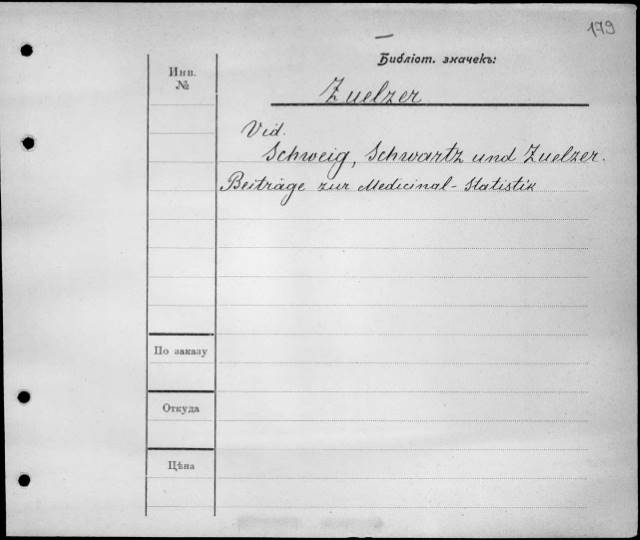 179
Библіот. значекъ:
Инв.
№
Zuelzer
Vid.
Schweig, Schwartz und Zuelzer.
Beiträge zur Medicinal-Statistik
По заказу
Откуда
Цѣна